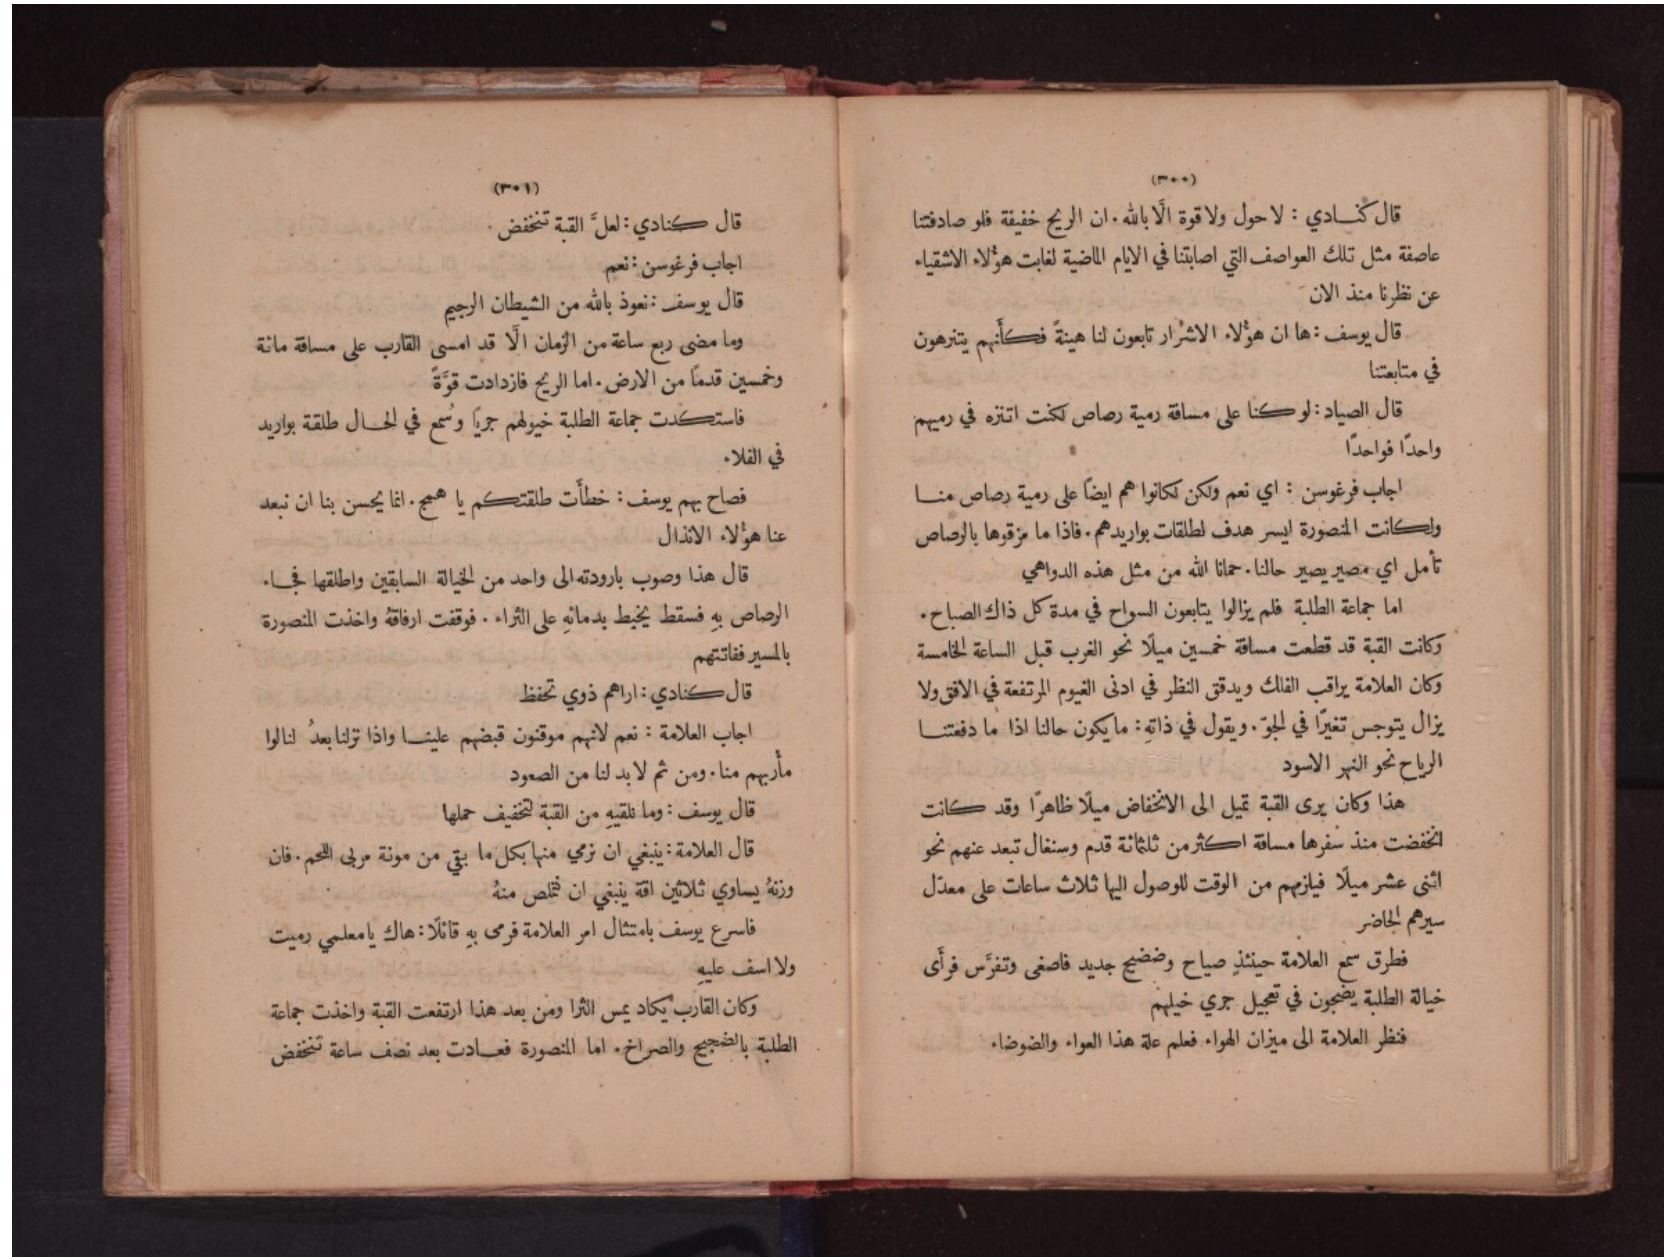 (٣٠٠)
قال كنادي : لا حول ولا قوة الَّا بالله. ان الريح خفيفة فلو صادفتنا
عاصفة مثل تلك العواصف التي اصابتنا في الايام الماضية لغابت هؤلاء الاشقياء
عن نظرنا منذ الان
قال يوسف : ها ان هؤلاء الاشرار تابعون لنا هينةً فكأَنهم يتنزهون
في متابعتنا
قال الصياد : لو كنا على مسافة رمية رصاص لكنت اتنزه في رميهم
واحدًا فواحدًا
اجاب فرغوسن : اي نعم ولكن لكانوا هم ايضاً على رمية رصاص منا
ولكانت المنصورة ايسر هدف لطلقات بواريدهم. فاذا ما مزقوها بالرصاص
تأمل اي مصير يصير حالنا. حمانا الله من مثل هذه الدواهي
اما جماعة الطلبة فلم يزالوا يتابعون السواح في مدة كل ذاك الصباح.
وكانت القبة قد قطعت مسافة خمسين ميلًا نحو الغرب قبل الساعة الخامسة
وكان العلامة يراقب الفلك ويدقق النظر في ادنى الغيوم المرتفعة في الافق ولا
يزال يتوجس تغيرًا في الجوّ. ويقول في ذاتهِ : ما يكون حالنا اذا ما دفعتنا
الرياح نحو النهر الاسود
هذا وكان يرى القبة تميل الى الانخفاض ميلًا ظاهرًا وقد كانت
انخفضت منذ سفرها مسافة اكثر من ثلثمائة قدم وسنغال تبعد عنهم نحو
اثنى عشر ميلًا فيلزمهم من الوقت للوصول اليها ثلاث ساعات على معدّل
سيرهم الحاضر
فطرق سمع العلامة حينئذٍ صياح وضضيج جديد فاصغى وتفرَّس فرأَى
خيالة الطلبة يضجون في تعجيل جري خيلهم
فنظر العلامة الى ميزان الهواء فعلم علة هذا العواء والضوضاء.
(٣٠١)
قال كنادي : لعلَّ القبة تنخفض.
اجاب فرغوسن : نعم
قال يوسف : نعوذ بالله من الشيطان الرجيم
وما مضى ربع ساعة من الزمان الَّا قد امسى القارب على مسافة مائة
وخمسين قدمًا من الارض. اما الريح فازدادت قوَّةً
فاستكدت جماعة الطلبة خيولهم جريًا وسُمع في الحال طلقة بواريد
في الفلاء.
فصاح بهم يوسف : خطأَت طلقتكم يا همج. انما يحسن بنا ان نبعد
عنا هؤلاء الانذال
قال هذا وصوب بارودته الى واحد من الخيالة السابقين واطلقها فجاء.
الرصاص بهِ فسقط يخبط بدمائهِ على الثراء. فوقفت ارفاقهُ واخذت المنصورة
بالمسير ففاتتهم
قال كنادي : اراهم ذوي تحفظ
اجاب العلامة : نعم لانهم موقنون قبضهم علينا واذا نزلنا بعدُ لنالوا
مأربهم منا. ومن ثم لا بد لنا من الصعود
قال يوسف : وما نلقيهِ من القبة لتخفيف حملها
قال العلامة : ينبغي ان نرمي منها بكل ما بقي من مونة مربى اللحم. فان
وزنهُ يساوي ثلاثين اقة ينبغي ان نتملص منهُ
فاسرع يوسف بامتثال امر العلامة فرمى بهِ قائلًا : هاك يا معلمي رميت
ولا اسف عليهِ
وكان القارب يكاد يمس الثرا ومن بعد هذا ارتفعت القبة واخذت جماعة
الطلبة بالضجيج والصراخ. اما المنصورة فعادت بعد نصف ساعة تنخفض